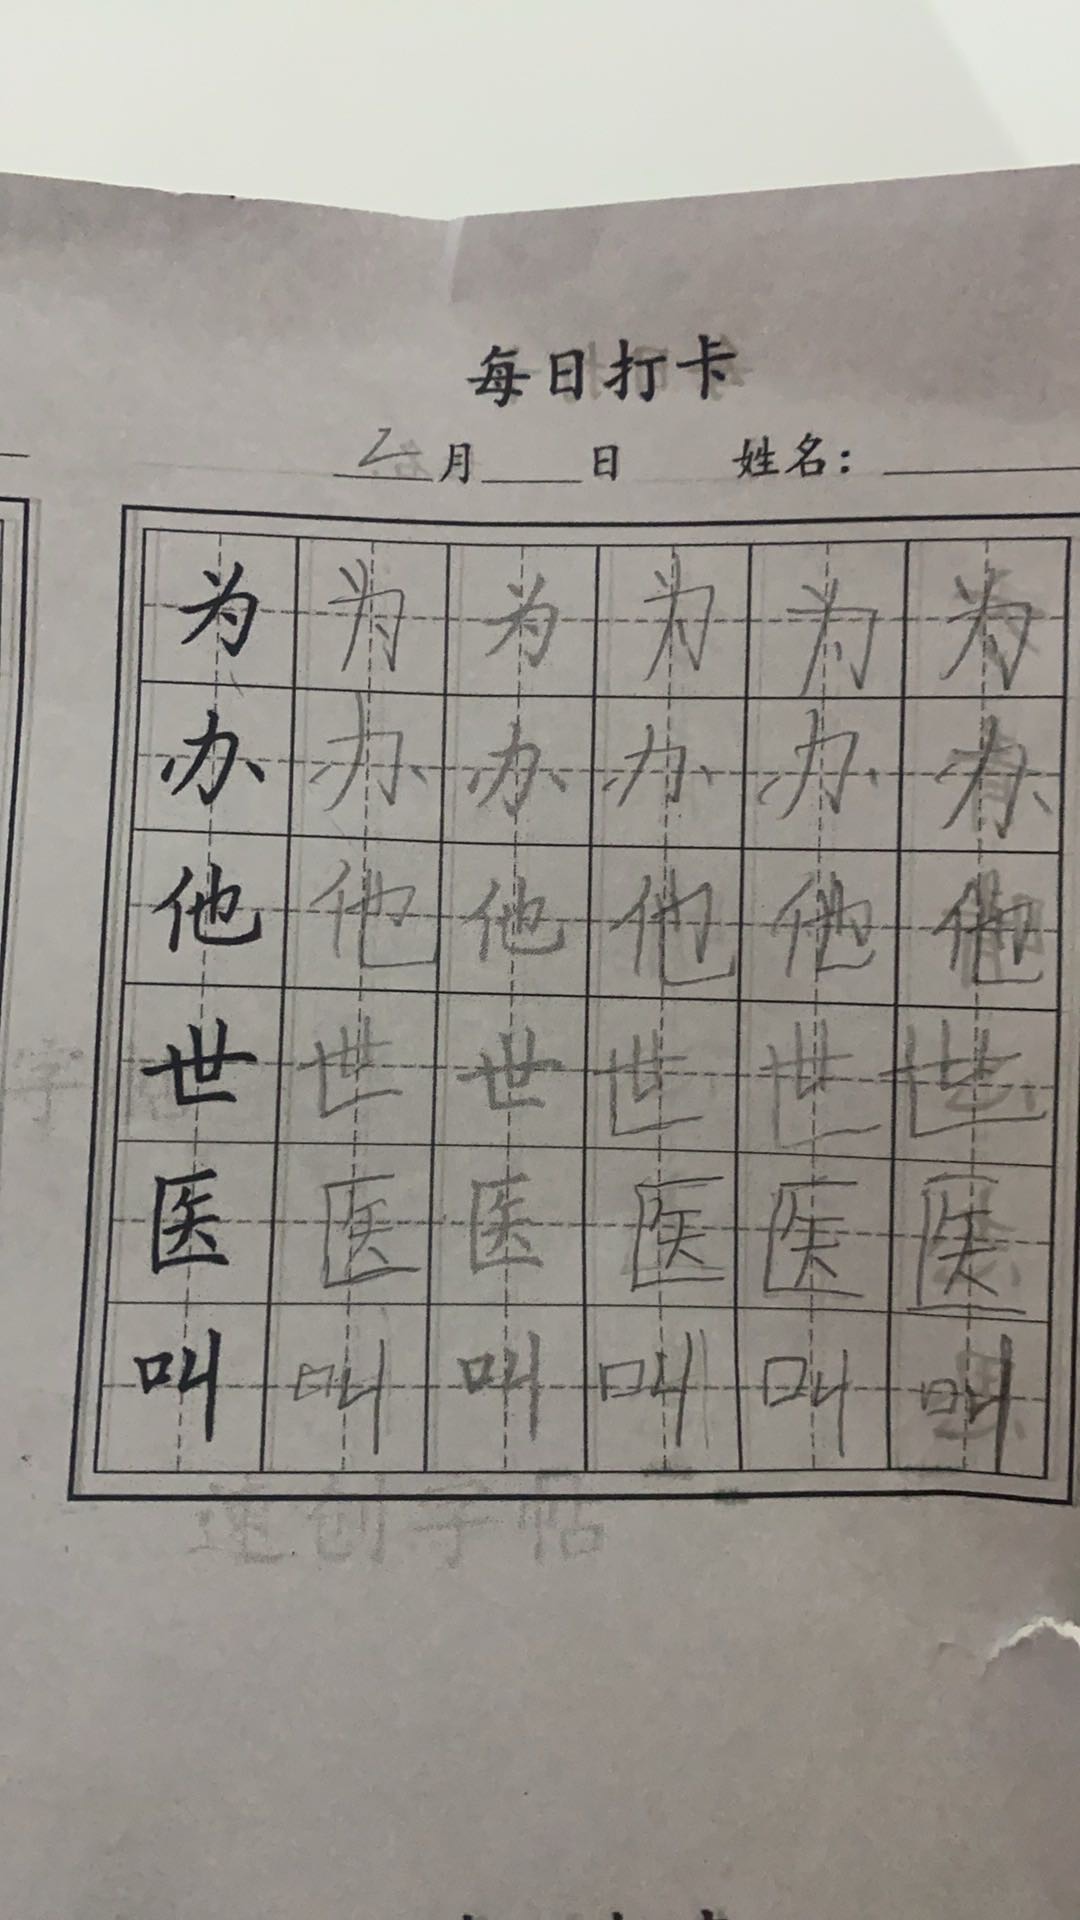 每日打卡
月 日 姓名：
为 为 为 为 为 为
办 办 办 办 办 办
他 他 他 他 他 他
世 世 世 世 世 世
医 医 医 医 医 医
叫 叫 叫 叫 叫 叫